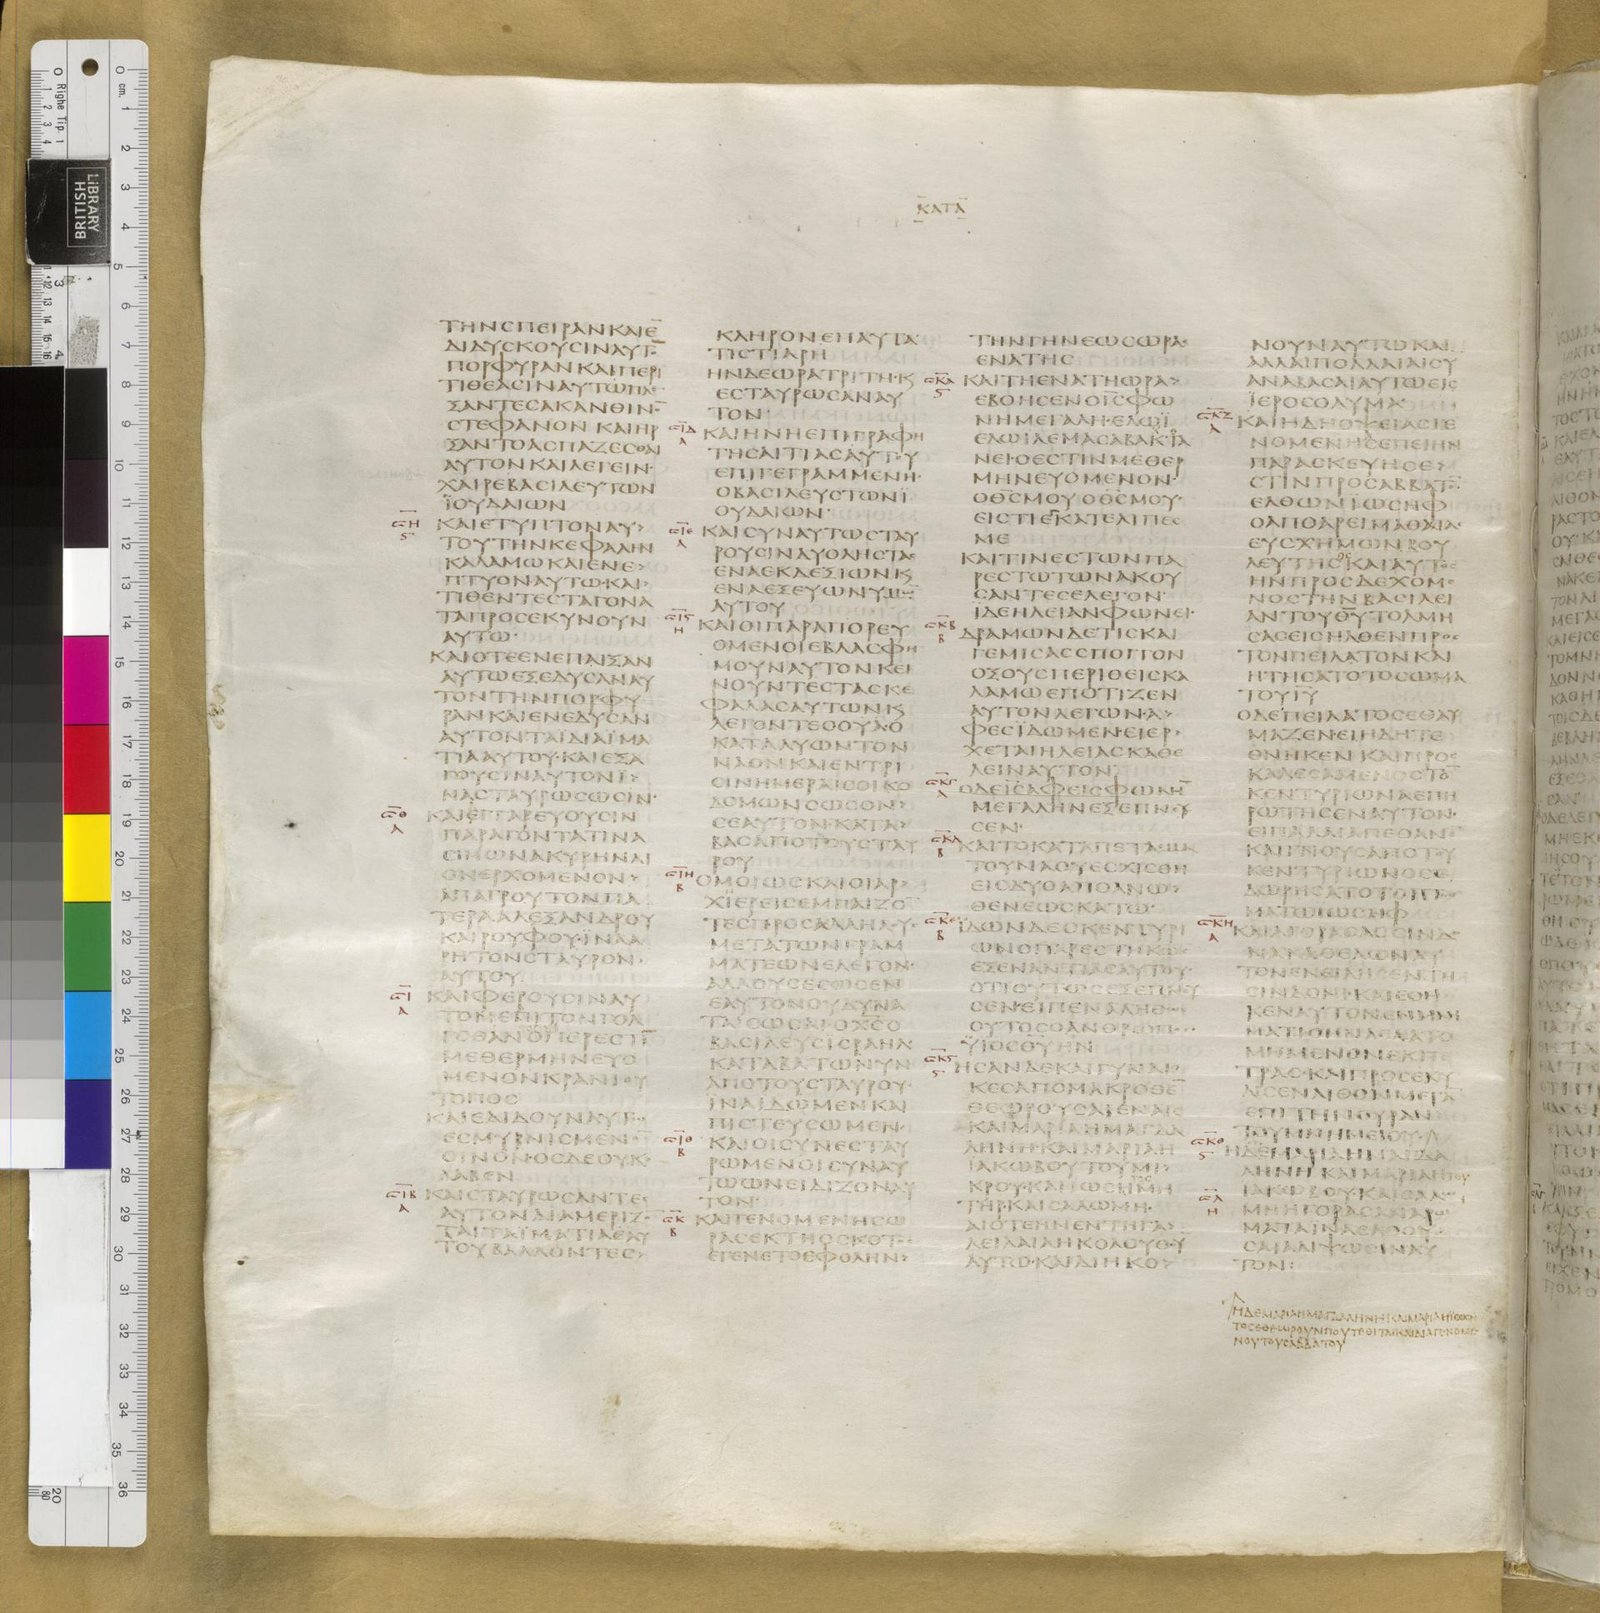 ΚΑΤΑ
ΤΗΝϹΠΕΙΡΑΝΚΑΙΕ̅
ΔΙΔΥϹΚΟΥϹΙΝΑΥΤ
ΠΟΡΦΥΡΑΝΚΑΙΠΕΡΙ
ΤΙΘΕΑϹΙΝΑΥΤΩΠΛΕ
ΞΑΝΤΕϹΑΚΑΝΘΙΝ
ϹΤΕΦΑΝΟΝΚΑΙΗΡ
ΞΑΝΤΟΑϹΠΑΖΕϹΘΑΙ
ΑΥΤΟΝΚΑΙΛΕΓΕΙΝ·
ΧΑΙΡΕΒΑϹΙΛΕΥΤΩΝ
ΪΟΥΔΑΙΩΝ
ΚΑΙΕΤΥΠΤΟΝΑΥ›
ΤΟΥΤΗΝΚΕΦΑΛΗΝ
ΚΑΛΑΜΩΚΑΙΕΝΕ›
ΠΤΥΟΝΑΥΤΩ·ΚΑΙ›
ΤΙΘΕΝΤΕϹΤΑΓΟΝΑ
ΤΑΠΡΟϹΕΚΥΝΟΥΝ
ΑΥΤΩ·
ΚΑΙΟΤΕΕΝΕΠΑΙΞΑΝ
ΑΥΤΩΕΞΕΔΥϹΑΝΑΥ
ΤΟΝΤΗΝΠΟΡΦΥ
ΡΑΝΚΑΙΕΝΕΔΥϹΑΝ
ΑΥΤΟΝΤΑΪΔΙΑΪΜΑ
ΤΙΑΑΥΤΟΥ·ΚΑΙΕΞΑ
ΓΟΥϹΙΝΑΥΤΟΝΪ›
ΝΑϹΤΑΥΡΩϹΩϹΙΝ·
ΚΑΙΕΓΓΑΡΕΥΟΥϹΙΝ
ΠΑΡΑΓΟΝΤΑΤΙΝΑ
ϹΙΜΩΝΑΚΥΡΗΝΑΙ
ΟΝΕΡΧΟΜΕΝΟΝ›
ΑΠΑΓΡΟΥΤΟΝΠΑ
ΤΕΡΑΑΛΕΞΑΝΔΡΟΥ
ΚΑΙΡΟΥΦΟΥ·ΪΝΑΑ
ΡΗΤΟΝϹΤΑΥΡΟΝ›
ΑΥΤΟΥ
ΚΑΙΦΕΡΟΥϹΙΝΑΥ
ΤΟΝΕΠΙΤΟΝΓΟΛ
ΓΟΘΑΝΟΠΕΡΕϹΤΙ̅
ΜΕΘΕΡΜΗΝΕΥΟ
ΜΕΝΟΝΚΡΑΝΙΟΥ
ΤΟΠΟϹ
ΚΑΙΕΔΙΔΟΥΝΑΥΤ
ΕϹΜΥΡΝΙϹΜΕΝ·
ΟΙΝΟΝ·ΟϹΔΕΟΥΚ·
ΛΑΒΕΝ
ΚΑΙϹΤΑΥΡΩϹΑΝΤΕϹ
ΑΥΤΟΝΔΙΑΜΕΡΙΖ
ΤΑΙΤΑΪΜΑΤΙΑΕΑΥ
ΤΟΥΒΑΛΛΟΝΤΕϹ›
ΚΛΗΡΟΝΕΠΑΥΤΑ·
ΤΙϹΤΙΑΡΗ
ΗΝΔΕΩΡΑΤΡΙΤΗ·Κ
ΕϹΤΑΥΡΩϹΑΝΑΥ
ΤΟΝ·
ΚΑΙΗΝΗΕΠΙΓΡΑΦΗ
ΤΗϹΑΙΤΙΑϹΑΥΤΟΥ
ΕΠΙΓΕΓΡΑΜΜΕΝΗ·
ΟΒΑϹΙΛΕΥϹΤΩΝΪ
ΟΥΔΑΙΩΝ·
ΚΑΙϹΥΝΑΥΤΩϹΤΑΥ
ΡΟΥϹΙΝΔΥΟΛΗϹΤΑϹ
ΕΝΑΕΚΔΕΞΙΩΝΚ
ΕΝΑΕΞΕΥΩΝΥΜ
ΑΥΤΟΥ
ΚΑΙΟΙΠΑΡΑΠΟΡΕΥ
ΟΜΕΝΟΙΕΒΛΑϹΦΗ
ΜΟΥΝΑΥΤΟΝΚΕΙ
ΝΟΥΝΤΕϹΤΑϹΚΕ
ΦΑΛΑϹΑΥΤΩΝΚ
ΛΕΓΟΝΤΕϹΟΥΑΟ
ΚΑΤΑΛΥΩΝΤΟΝ
ΝΑΟΝΚΑΙΕΝΤΡΙ
ϹΙΝΗΜΕΡΑΙϹΟΙΚΟ
ΔΟΜΩΝϹΩϹΟΝ›
ϹΕΑΥΤΟΝ·ΚΑΤΑ›
ΒΑϹΑΠΟΤΟΥϹΤΑΥ
ΡΟΥ
ΟΜΟΙΩϹΚΑΙΟΙΑΡ›
ΧΙΕΡΕΙϹΕΜΠΑΙΖΟ̅
ΤΕϹΠΡΟϹΑΛΛΗΛΟΥ
ΜΕΤΑΤΩΝΓΡΑΜ
ΜΑΤΕΩΝΕΛΕΓΟΝ·
ΑΛΛΟΥϹΕϹΩϹΕΝ
ΕΑΥΤΟΝΟΥΔΥΝΑ
ΤΑΙϹΩϹΑΙ·ΟΧ̅Ϲ̅Ο
ΒΑϹΙΛΕΥϹΙϹΡΑΗΛ
ΚΑΤΑΒΑΤΩΝΥΝ
ΑΠΟΤΟΥϹΤΑΥΡΟΥ·
ΪΝΑΪΔΩΜΕΝΚΑΙ
ΠΙϹΤΕΥϹΩΜΕΝ·
ΚΑΙΟΙϹΥΝΕϹΤΑΥ
ΡΩΜΕΝΟΙϹΥΝΑΥ
ΤΩΩΝΕΙΔΙΖΟΝΑΥ
ΤΟΝ·
ΚΑΙΓΕΝΟΜΕΝΗϹΩ
ΡΑϹΕΚΤΗϹϹΚΟΤ
ΕΓΕΝΕΤΟΕΦΟΛΗΝ›
ΤΗΝΓΗΝΕΩϹΩΡΑ·
ΕΝΑΤΗϹ
ΚΑΙΤΗΕΝΑΤΗΩΡΑ›
ΕΒΟΗϹΕΝΟΙ̅Ϲ̅ΦΩ
ΝΗΜΕΓΑΛΗ·ΕΛΩΪ
ΕΛΩΙΛΕΜΑϹΑΒΑΚΤΑ
ΝΕΙ·ΟΕϹΤΙΝΜΕΘΕΡ
ΜΗΝΕΥΟΜΕΝΟΝ·
ΟΘ̅Ϲ̅ΜΟΥΟΘ̅Ϲ̅ΜΟΥ·
ΕΙϹΤΙΕΓΚΑΤΕΛΙΠΕϹ
ΜΕ
ΚΑΙΤΙΝΕϹΤΩΝΠΑ
ΡΕϹΤΩΤΩΝΑΚΟΥ
ϹΑΝΤΕϹΕΛΕΓΟΝ·
ΪΔΕΗΛΕΙΑΝΦΩΝΕΙ·
ΔΡΑΜΩΝΔΕΤΙϹΚΑΙ
ΓΕΜΙϹΑϹϹΠΟΓΓΟΝ
ΟΞΟΥϹΠΕΡΙΘΕΙϹΚΑ
ΛΑΜΩΕΠΟΤΙΖΕΝ
ΑΥΤΟΝΛΕΓΩΝ·Α›
ΦΕϹΪΔΩΜΕΝ·ΕΙΕΡ›
ΧΕΤΑΙΗΛΕΙΑϹΚΑΘΕ
ΛΕΙΝΑΥΤΟΝ
ΟΔΕΙ̅Ϲ̅ΑΦΕΙϹΦΩΝΗ̅
ΜΕΓΑΛΗΝΕΞΕΠΝΕΥ
ϹΕΝ·
ΚΑΙΤΟΚΑΤΑΠΕΤΑϹΜΑ
ΤΟΥΝΑΟΥΕϹΧΙϹΘΗ
ΕΙϹΔΥΟΑΠΟΑΝΩ›
ΘΕΝΕΩϹΚΑΤΩ·
ΪΔΩΝΔΕΟΚΕΝΤΥΡΙ
ΩΝΟΠΑΡΕϹΤΗΚΩϹ
ΕΞΕΝΑΝΤΙΑϹΑΥΤΟΥ·
ΟΤΙΟΥΤΩϹΕΞΕΠΝΕΥ
ϹΕΝ·ΕΙΠΕΝΑΛΗΘΩϹ
ΟΥΤΟϹΟΑΝΘΡΩΠΟϹ
ΫΙΟϹΘ̅Υ̅ΗΝ
ΗϹΑΝΔΕΚΑΙΓΥΝΑΙ›
ΚΕϹΑΠΟΜΑΚΡΟΘΕ̅
ΘΕΩΡΟΥϹΑΙΕΝΑΙϹ
ΚΑΙΜΑΡΙΑΗΜΑΓΔΑ
ΛΗΝΗ·ΚΑΙΜΑΡΙΑΗ
ΪΑΚΩΒΟΥΤΟΥΜΙ›
ΚΡΟΥ·ΚΑΙΙΩϹΗΜΗ
ΤΗΡ·ΚΑΙϹΑΛΩΜΗ·
ΑΙΟΤΕΗΝΕΝΤΗΓΑ›
ΛΕΙΛΑΙΑΗΚΟΛΟΥΘΟΥ
ΑΥΤΩ·ΚΑΙΔΙΗΚΟ›
ΝΟΥΝΑΥΤΩΚΑΙ
ΑΛΛΑΙΠΟΛΛΑΙΑΙϹΥ
ΑΝΑΒΑϹΑΙΑΥΤΩΕΙϹ
ΪΕΡΟϹΟΛΥΜΑ·
ΚΑΙΗΔΗΟΨΕΙΑϹΓΕ
ΝΟΜΕΝΗϹΕΠΕΙΗΝ
ΠΑΡΑϹΚΕΥΗΟΕ›
ϹΤΙΝΠΡΟϹΑΒΒΑΤ
ΕΛΘΩΝΪΩϹΗΦ
ΟΑΠΟΑΡΕΙΜΑΘΑΙΑ·
ΕΥϹΧΗΜΩΝΒΟΥ
ΛΕΥΤΗϹΟϹΚΑΙΑΥΤΟϹ
ΗΝΠΡΟϹΔΕΧΟΜΕ
ΝΟϹΤΗΝΒΑϹΙΛΕΙ
ΑΝΤΟΥΘ̅Υ̅ΤΟΛΜΗ
ϹΑϹΕΙϹΗΛΘΕΝΠΡΟϹ
ΤΟΝΠΕΙΛΑΤΟΝΚΑΙ
ΗΤΗϹΑΤΟΤΟϹΩΜΑ
ΤΟΥΙ̅Υ̅
ΟΔΕΠΕΙΛΑΤΟϹΕΘΑΥ
ΜΑΖΕΝ·ΕΙΗΔΗΤΕ
ΘΝΗΚΕΝΚΑΙΠΡΟϹ
ΚΑΛΕϹΑΜΕΝΟϹΤΟ̅
ΚΕΝΤΥΡΙΩΝΑΕΠΗ
ΡΩΤΗϹΕΝΑΥΤΟΝ·
ΕΙΠΑΛΑΙΑΠΕΘΑΝ
ΚΑΙΓΝΟΥϹΑΠΟΤΟΥ
ΚΕΝΤΥΡΙΩΝΟϹΕ
ΔΩΡΗϹΑΤΟΤΟΠΤΩ
ΜΑΤΩΙΩϹΗΦ
ΚΑΙΑΓΟΡΑϹΑϹϹΙΝΔΟ
ΝΑΚΑΘΕΛΩΝΑΥ
ΤΟΝΕΝΕΙΛΗϹΕΝΤΗ
ϹΙΝΔΟΝΙ·ΚΑΙΕΘΗ
ΚΕΝΑΥΤΟΝΕΝΜΝΗ
ΜΑΤΙΟΗΝΛΕΛΑΤΟ
ΜΗΜΕΝΟΝΕΚΠΕ
ΤΡΑϹ·ΚΑΙΠΡΟϹΕΚΥ
ΛΙϹΕΝΛΙΘΟΝΜΕΓΑ
ΕΠΙΤΗΝΘΥΡΑΝ
ΤΟΥΜΝΗΜΕΙΟΥ·
ΗΔΕΜΑΡΙΑΗΜΑΓΔΑ
ΛΗΝΗΚΑΙΜΑΡΙΑΗ
ΙΑΚΩΒΟΥ·ΚΑΙϹΑΛΩ
ΜΗΗΓΟΡΑϹΑΝΑΡΩ
ΜΑΤΑΙΝΑΕΛΘΟΥ
ϹΑΙΑΛΙΨΩϹΙΝΑΥ
ΤΟΝ:
ΗΔΕΜΑΡΙΑΗΜΑΓΔΑΛΗΝΗΚΑΙΜΑΡΙΑΗΪΩϹΗ
ΤΟϹΕΘΕΩΡΟΥΝΠΟΥΤΕΘΙΤΑΙΚΑΙΔΙΑΓΕΝΟΜΕ
ΝΟΥΤΟΥϹΑΒΒΑΤΟΥ
BRITISH
LIBRARY